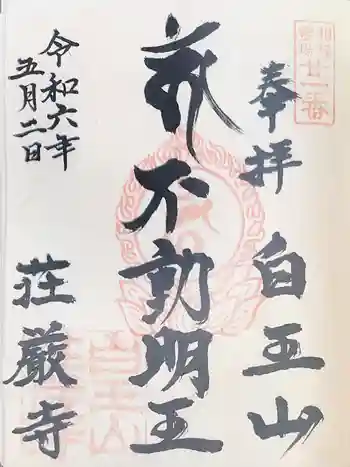 廿一番
奉拝
白玉山
不動明王
荘厳寺
令和六年
五月二日